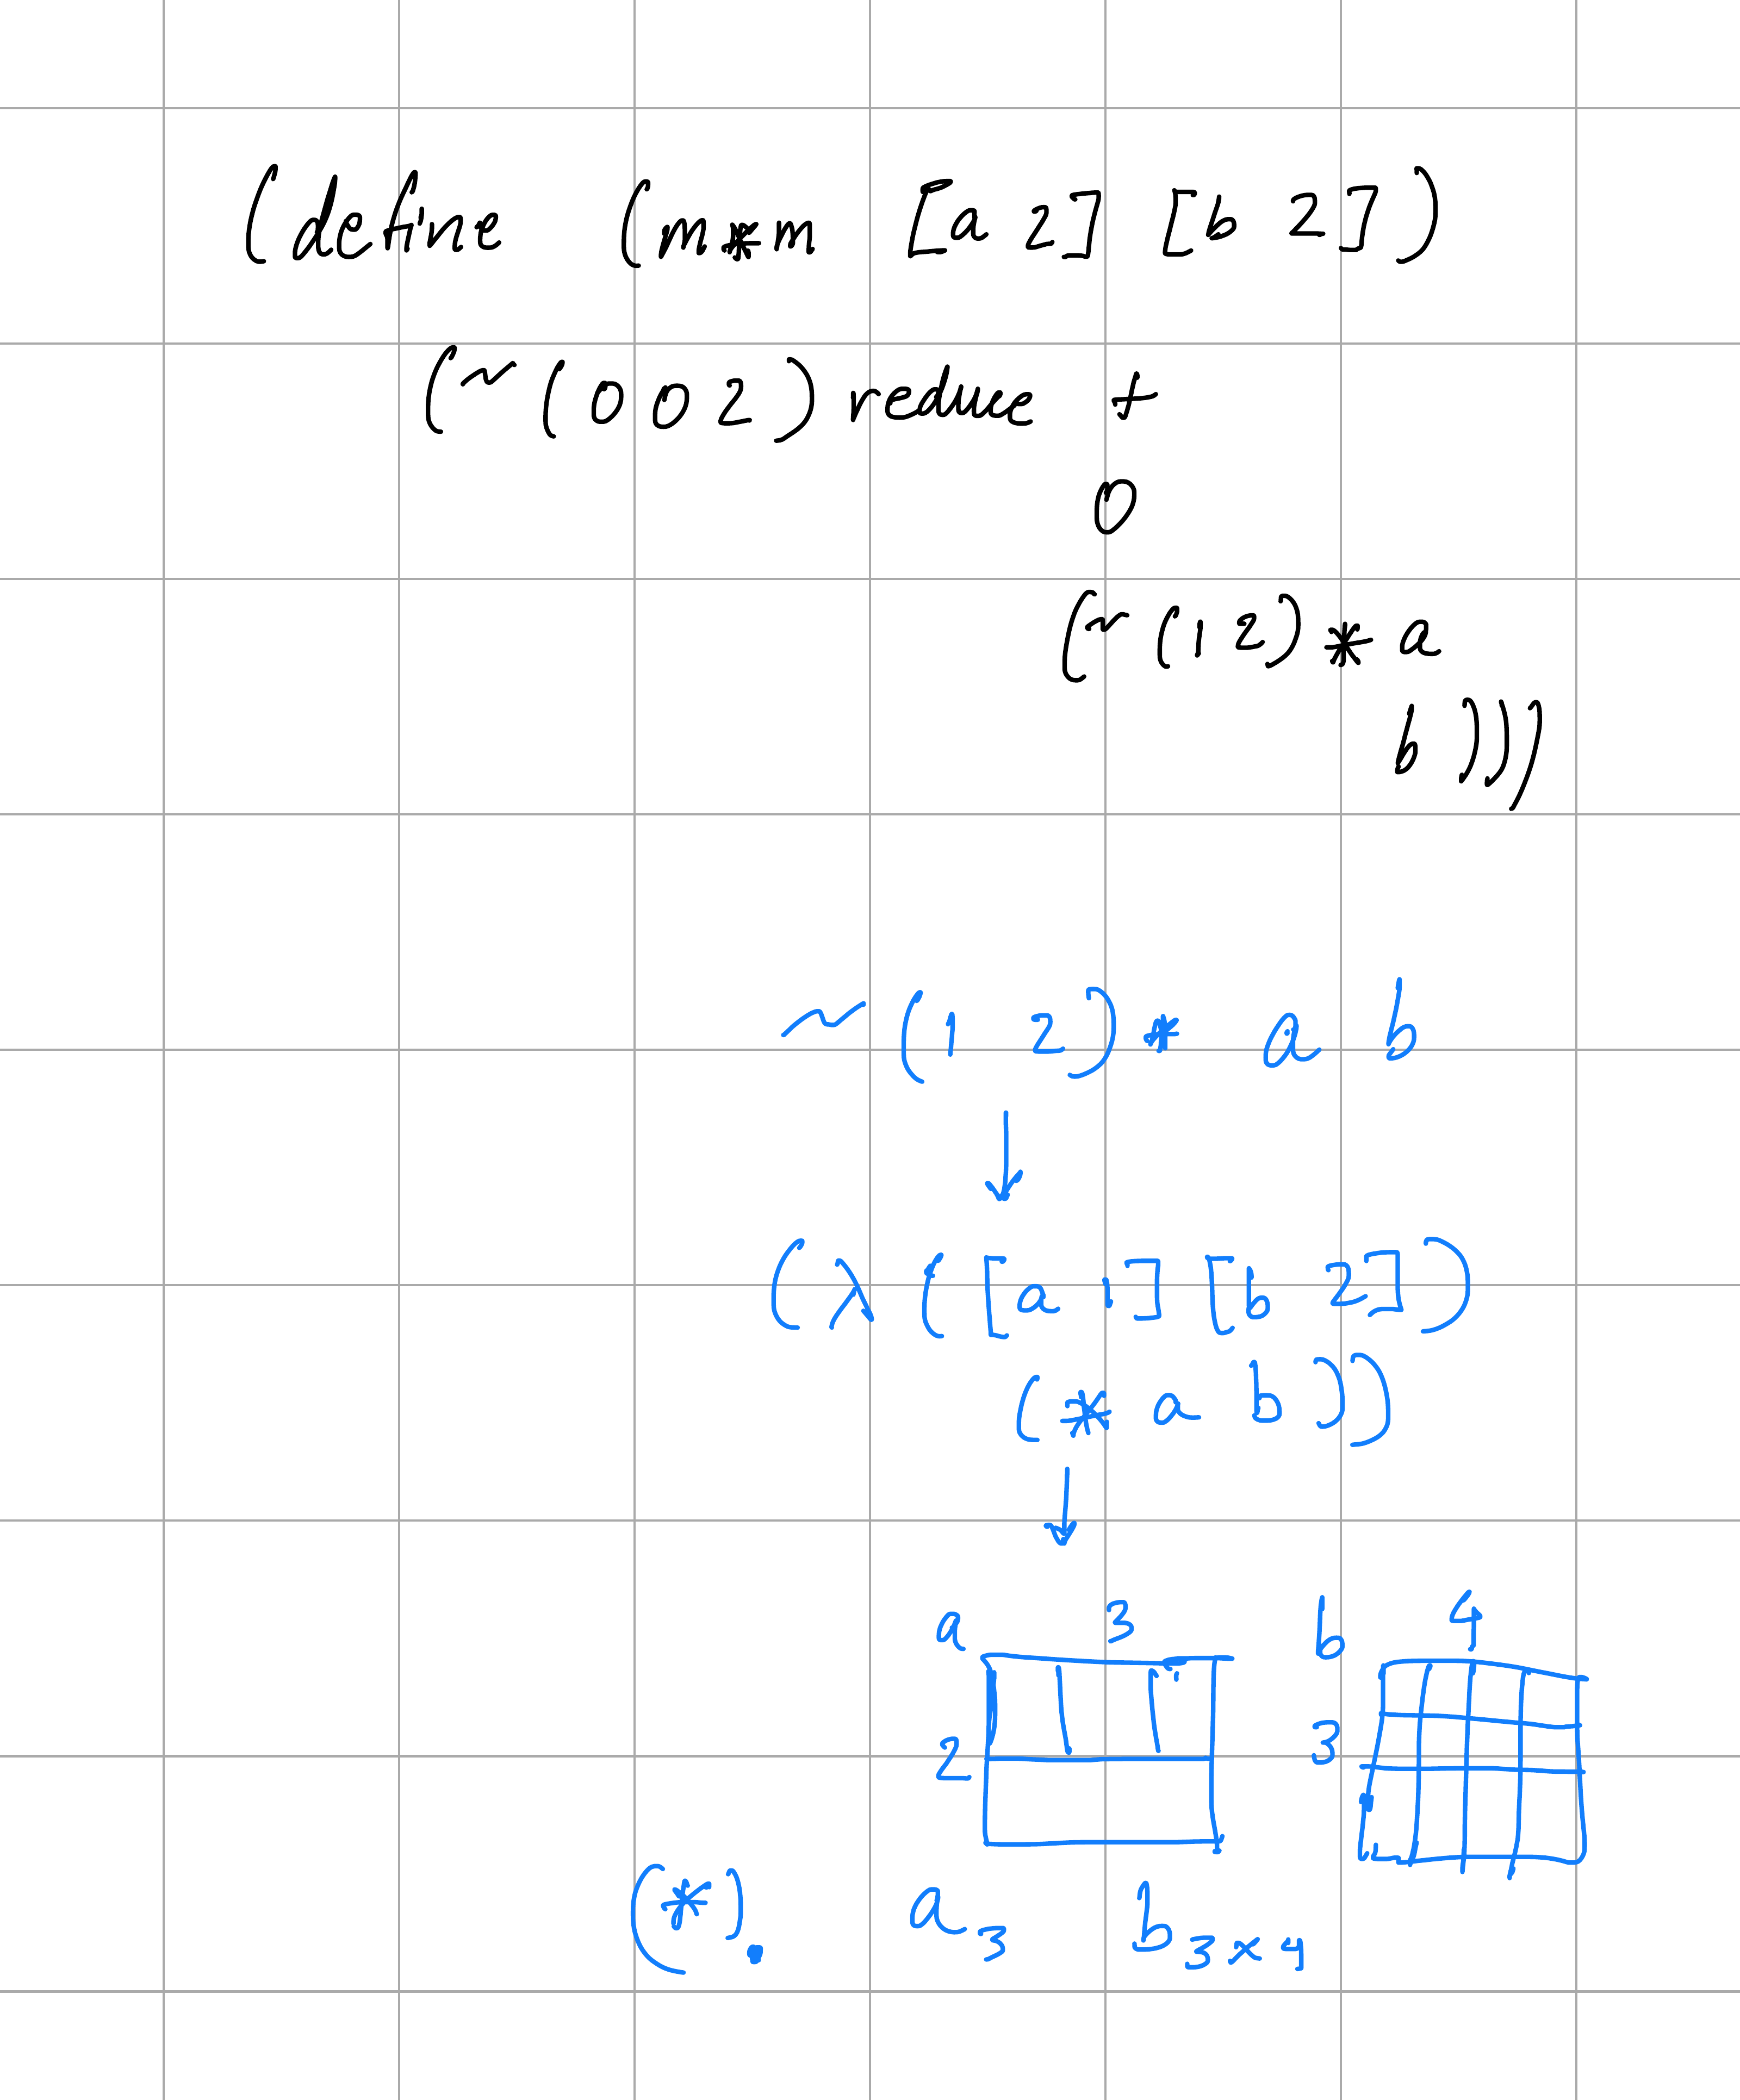 (define (m*m [a 2] [b 2])
(~(0 0 2)reduce +
0
(~(1 2)* a
b)))
~(1 2)* a b
↓
(λ([a 1][b 2])
(* a b))
↓
a 3 b 4
2 3
(*). a₃ b₃ₓ₄